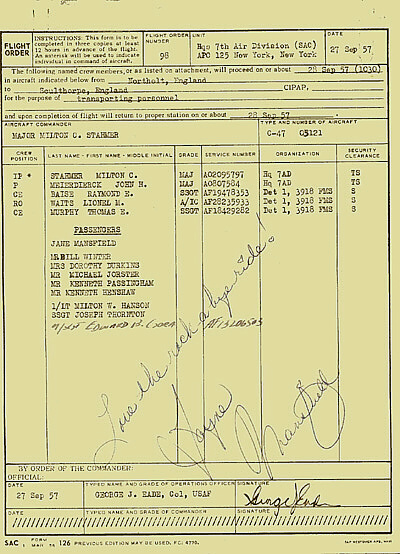 FLIGHT ORDER
INSTRUCTIONS: This form is to be
completed in three copies at least
12 hours in advance of the flight.
An asterisk will be used to indicate
individual in command of aircraft.
FLIGHT ORDER NUMBER
98
UNIT
Hqs 7th Air Division (SAC)
APO 125 New York, New York
DATE
27 Sep 57
The following named crew members, or as listed on attachment, will proceed on or about 28 Sep 57 (1030)
in aircraft indicated below from Northolt, England
to Sculthorpe, England CIPAP,
for the purpose of transporting personnel
and upon completion of flight will return to proper station on or about 28 Sep 57
AIRCRAFT COMMANDER
MAJOR MILTON C. STAHMER
TYPE AND NUMBER OF AIRCRAFT
C-47 G5121
CREW POSITION LAST NAME - FIRST NAME - MIDDLE INITIAL GRADE SERVICE NUMBER ORGANIZATION SECURITY CLEARANCE
IP * STAHMER MILTON C. MAJ AO2095797 Hq 7AD TS
P MEIERDIERCK JOHN H. MAJ AO807584 Hq 7AD TS
CE RAISE RAYMOND E. SSGT AF19478353 Det 1, 3918 FMS S
RO WAITS LIONEL M. A/1C AF28235933 Det 1, 3918 FMS S
CE MURPHY THOMAS E. SSGT AF18429282 Det 1, 3918 FMS S
PASSENGERS
JANE MANSFIELD
MR BILL WINTER
MRS DOROTHY DURKINS
MR MICHAEL JORSTER
MR KENNETH PASSINGHAM
MR KENNETH HENSHAW
1/LT MILTON W. HANSON
SSGT JOSEPH THORNTON
Love the rock a bye ride!
Jayne Mansfield
BY ORDER OF THE COMMANDER:
OFFICIAL:
DATE
27 Sep 57
TYPED NAME AND GRADE OF OPERATIONS OFFICER
GEORGE J. EADE, Col, USAF
SIGNATURE
George J Eade
DATE
TYPED NAME AND GRADE
SIGNATURE
SAC FORM 126 PREVIOUS EDITION MAY BE USED.